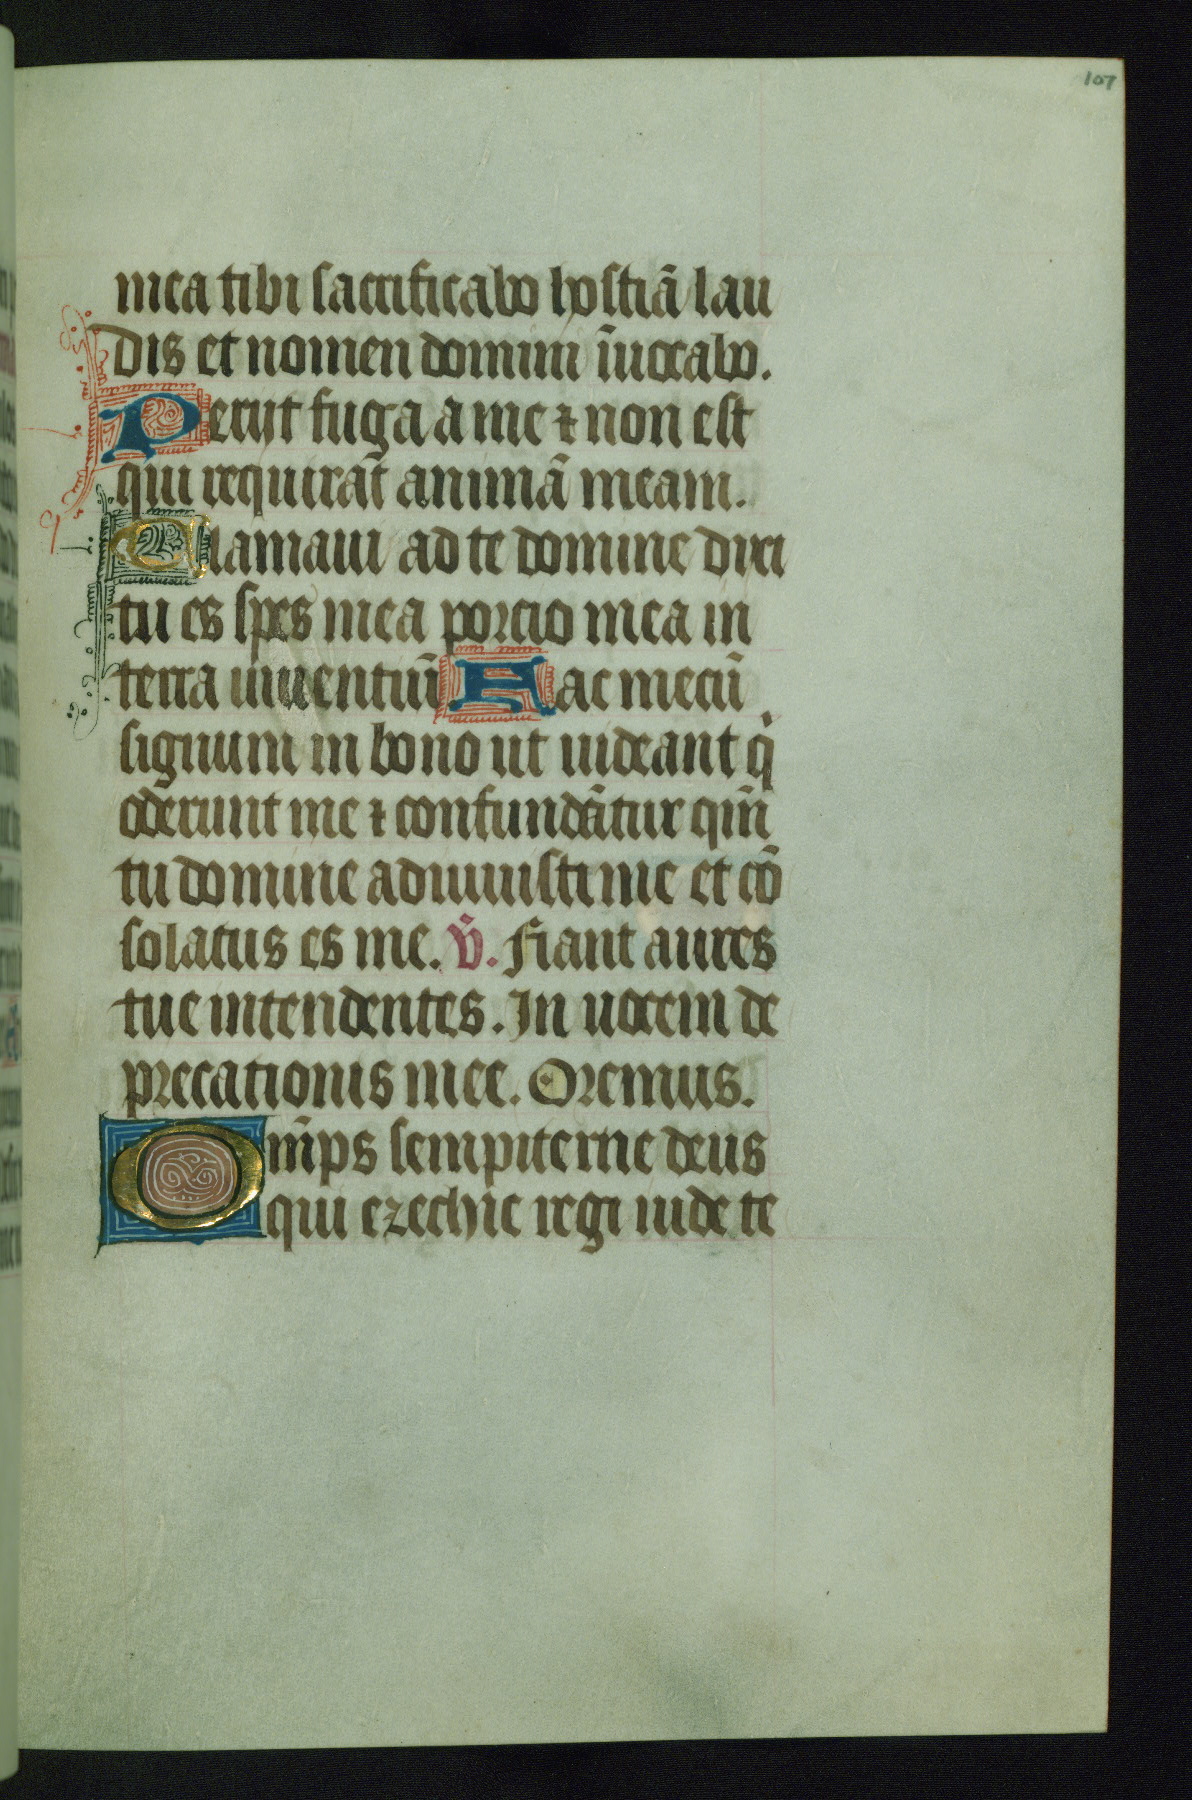 107
mea tibi sacrificabo hostiā lau
dis et nomen domini īuocabo.
Periit fuga a me ⁊ non est
qui requirāt animā meam.
Clamaui ad te domine dixi
tu es spes mea porcio mea in
terra uiuentiū. Fac mecū
signum in bono ut uideant q̄
oderunt me ⁊ confundātur qm̄
tu domine adiuuisti me et cō
solatus es me. v̄. Fiant aures
tue intendentes. In uocem de
precationis mee. Oremus.
Om̄ps sempiterne deus
qui ezechie regi iude te